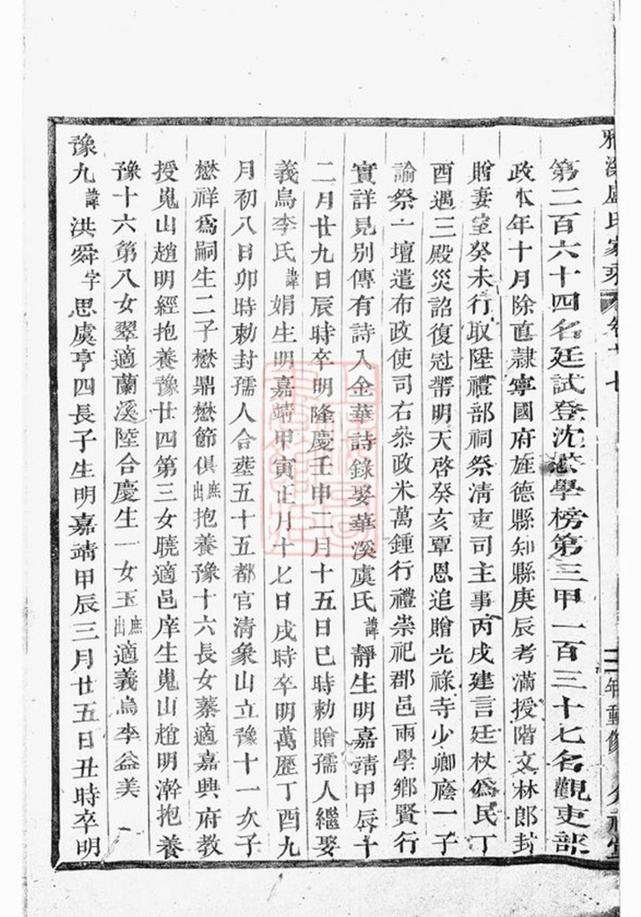 雅溪盧氏家乘 卷十七
第二百六十四名廷試登沈懋學榜第三甲一百三十七名觀吏部
政本年十月除直隸寧國府旌德縣知縣庚辰考滿授階文林郎封
贈妻室癸未行取陞禮部祠祭清吏司主事丙戌建言廷杖為民丁
酉遇三殿災詔復冠帶明天啓癸亥覃恩追贈光祿寺少卿廕一子
諭祭一壇遣布政使司右叅政米萬鍾行禮崇祀郡邑兩學鄉賢行
實詳見別傳有詩入金華詩錄娶華溪虞氏諱靜生明嘉靖甲辰十
二月廿九日辰時卒明隆慶壬申二月十五日巳時勅贈孺人繼娶
義烏李氏諱娟生明嘉靖甲寅正月十七日戌時卒明萬歷丁酉九
月初八日卯時勅封孺人合葬五十五都官清象山立豫十一次子
懋祥爲嗣生二子懋鼎懋節俱庶出抱養豫十六長女蓁適嘉興府教
授嵬山趙明經抱養豫廿四第三女曉適邑庠生嵬山趙明澣抱養
豫十六第八女翠適蘭溪陸合慶生一女玉庶出適義烏李益美
豫九諱洪舜字思虞亨四長子生明嘉靖甲辰三月廿五日丑時卒明